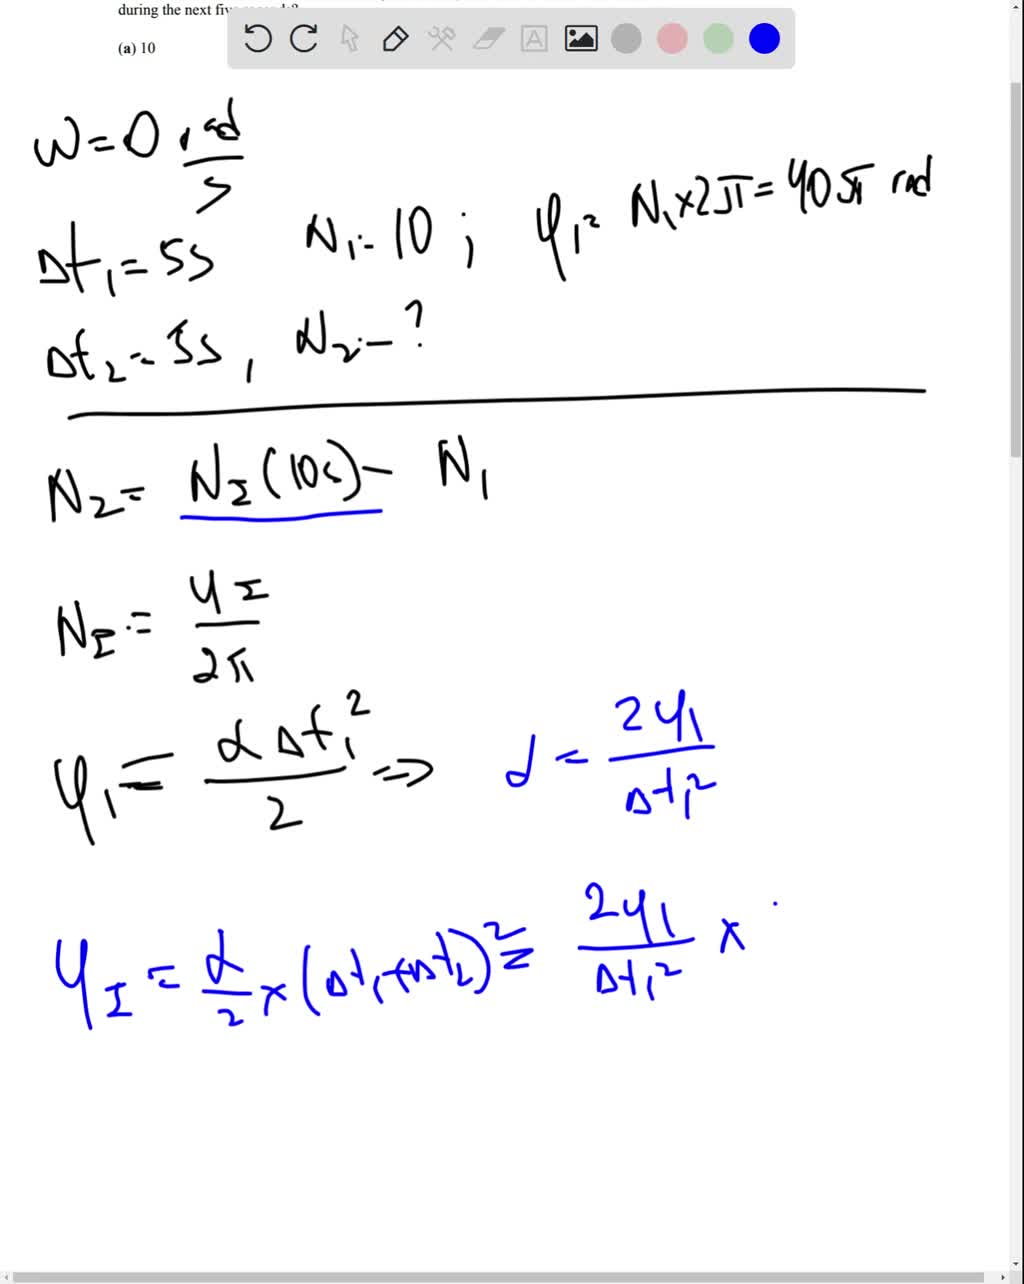 during the next fiv
(a) 10
ω = 0 rad/s
Δt₁ = 5s N₁ = 10 ; φ₁ = N₁ × 2π = 40π rad
Δt₂ = 5s , N₂ - ?
N₂ = N_Σ (10s) - N₁
N_Σ = φ_Σ / 2π
φ₁ = αΔt₁² / 2 ⇒ α = 2φ₁ / Δt₁²
φ_Σ = α/2 × (Δt₁ + Δt₂)² = 2φ₁ / Δt₁² ×